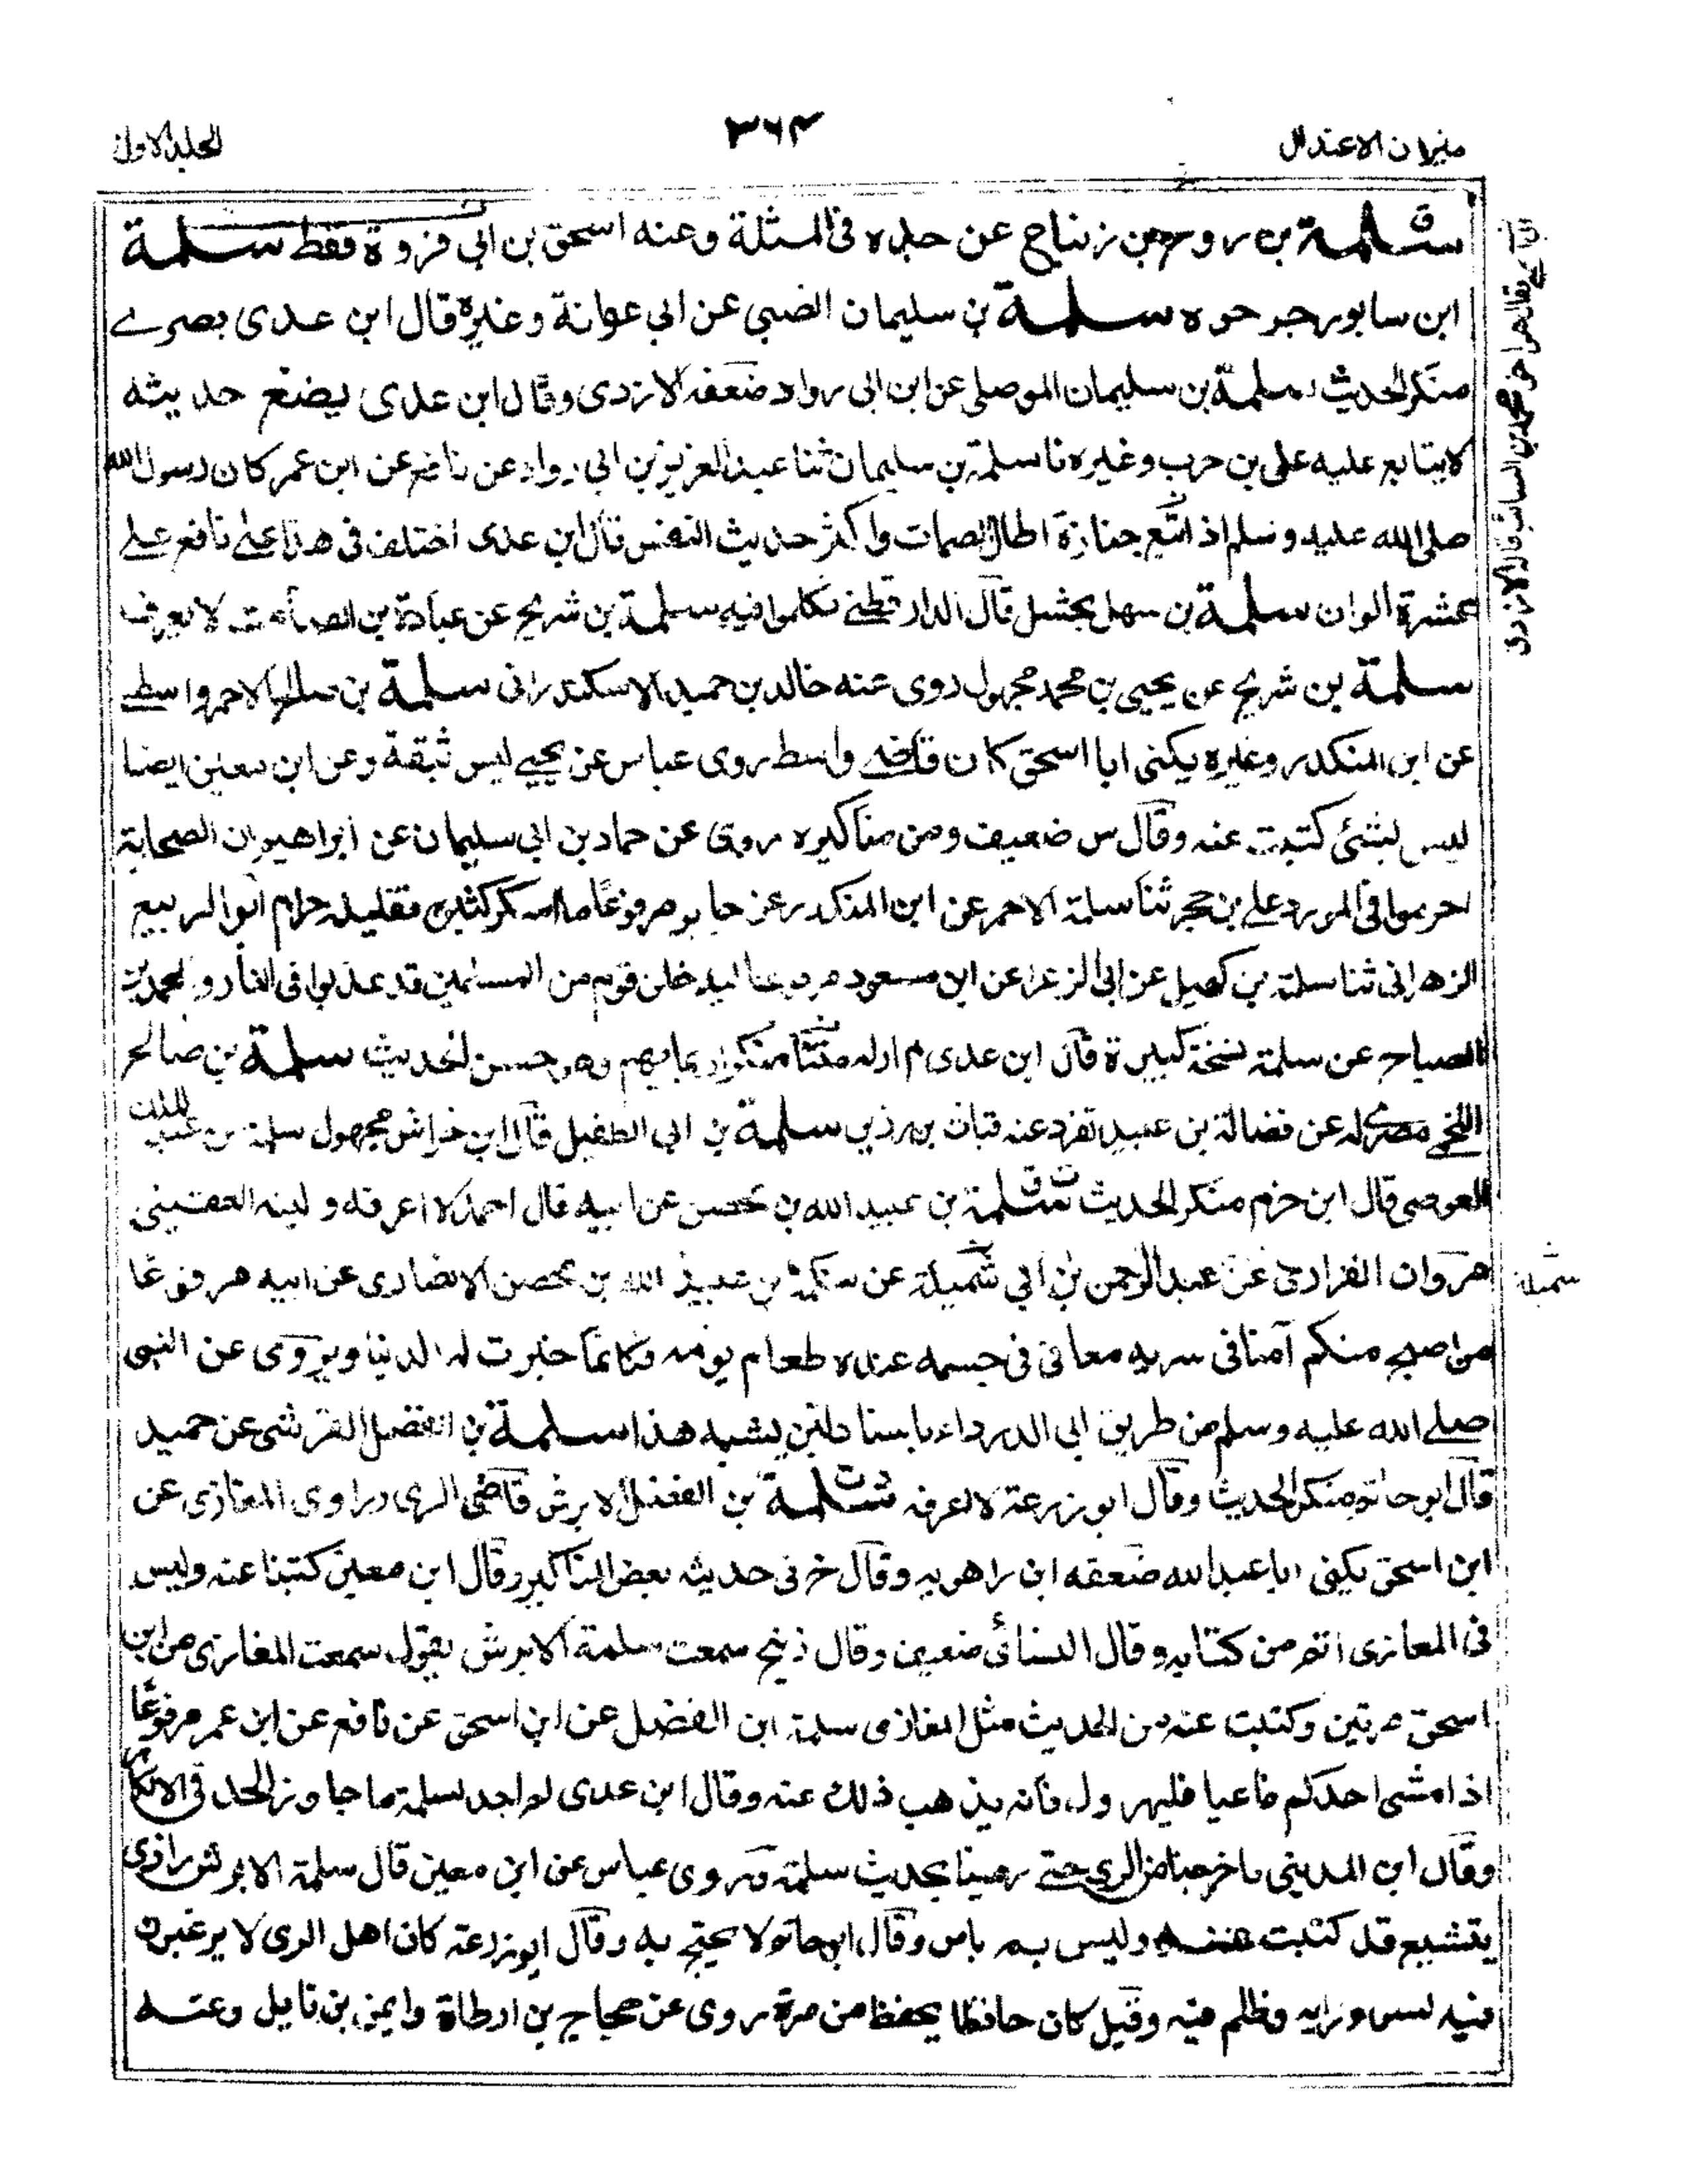 ميزان الاعتدال
٣٦٤
الجلد الاول
سلمة بن روح بن زنباع عن جده فى المثلة وعنه اسحق بن ابى فروة فقط سلمة
ابن سابور جرحوه سلمة بن سليمان الضبى عن ابى عوانة وغيره قال ابن عدى بصرے
منكر الحديث سلمة بن سليمان الموصلى عن ابن ابى رواد ضعفه الازدى وقال ابن عدى يضع حديثه
لا يتابع عليه على بن حرب وغيره نا سلمة بن سليمان ثنا عبد العزيز بن ابى رواد عن نافع عن ابن عمر كان رسول الله
صلى الله عليه وسلم اذا اتبع جنازة اطال الصمات واكثر حديث النفس قال ابن عدى اختلف فى هذا على نافع علے
عشرة الوان سلمة بن سهل بحشل قال الدارقطنے تكلموا فيه سلمة بن شريح عن عبادة بن الصامت لا يعرف
سلمة بن شريح عن يحيى بن محمد مجهول روى عنه خالد بن حميد الاسكندرانى سلمة بن صالح الاحمر واسطے
عن ابن المنكدر وغيره يكنى ابا اسحق كان قاضے واسط روى عباس عن يحيے ليس ثبقة وعن ابن معين ايضا
ليس بشئ كتبت عنه وقال س ضعيف ومن مناكيره روى عن حماد بن ابى سليمان عن ابراهيم ان الصحابة
احرموا فى المورد علے بن حجر ثنا سلمة الاحمر عن ابن المنكدر عن جابر مرفوعًا ما اسكر كثيره فقليله حرام ابو الربيع
الزهرانى ثنا سلمة بن كهيل عن ابى الزعرا عن ابن مسعود مرفوعا ليدخلن قوم من المسلمين قد عذبوا فى النار و لمحمد بن
الصباح عن سلمة نسخة كبيرة قال ابن عدى لم ار له متنا منكرا ربما يهم وهو حسن الحديث سلمة بن صالح
اللخمے مصرے له عن فضالة بن عبيد تفرد عنه قبات بن رزين سلمة بن ابى الطفيل قال ابن خراش مجهول سلمة بن عبد الملك
العوصى قال ابن حزم منكر الحديث سلمة بن عبيد الله بن محصن عن ابيه قال احمد لا اعرفه ولينه العقيلى
مروان الفزارى عن عبد الرحمن بن ابى شميلة عن سلمة بن عبيد الله بن محصن الانصارى عن ابيه مرفوعا
من اصبح منكم آمنا فى سربه معافى فى جسمه عنده طعام يومه فكانما حيزت له الدنيا ويروى عن النبى
صلے الله عليه وسلم من طريق ابى الدرداء باسناد لين يشبه هذا سلمة بن الفضل القرشى عن حميد
قال ابو حاتم منكر الحديث وقال ابو زرعة لا اعرفه سلمة بن الفضل الابرش قاضى الرى وراوى المغازى عن
ابن اسحق يكنى ابا عبد الله ضعفه ابن راهويه وقال خ فى حديثه بعض المناكير وقال ابن معين كتبنا عنه وليس
فى المغازى اتم من كتابه وقال النسائى ضعيف وقال زنيج سمعت سلمة الابرش يقول سمعت المغازى من ابن
اسحق مرتين وكتبت عنه من الحديث مثل المغازى سلمة ابن الفضل عن ابن اسحق عن نافع عن ابن عمر مرفوعًا
اذا مشى احدكم فاعيا فليهرول فانه يذهب ذلك عنه وقال ابن عدى لم اجد لسلمة ما جاوز الحد فى الانكار
وقال ابن المدينى ما خرجنا من الرى حتے رمينا بحديث سلمة وروى عباس عن ابن معين قال سلمة الابرش رازى
يتشيع قد كتبت عنه وليس به باس وقال ابو حاتم لا يحتج به وقال ابو زرعة كان اهل الرى لا يرغبون
فيه لسوء رايه وظلم فيه وقيل كان حافظا يحفظ من مرة روى عن حجاج بن ارطاة وايمن بن نابل وعنه
يقال هو اخو محمد بن السائب قال الازدى
شميلة